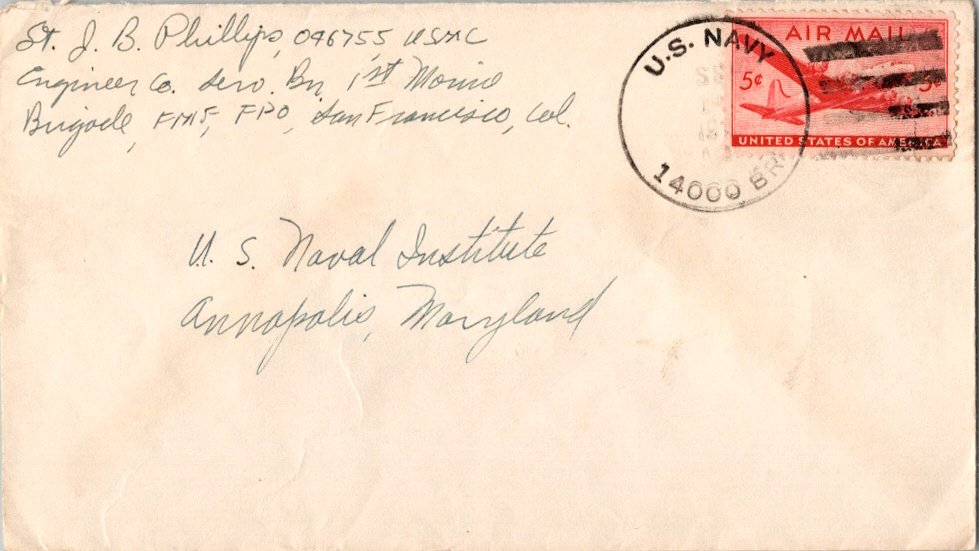 Lt. J. B. Phillips, 046755 USMC
Engineer Co. Serv. Bn 1st Marine
Brigade, FMF, FPO, San Francisco, Cal.
U.S. NAVY
14000 BR.
AIR MAIL
5¢ 5¢
UNITED STATES OF AMERICA
U. S. Naval Institute
Annapolis, Maryland